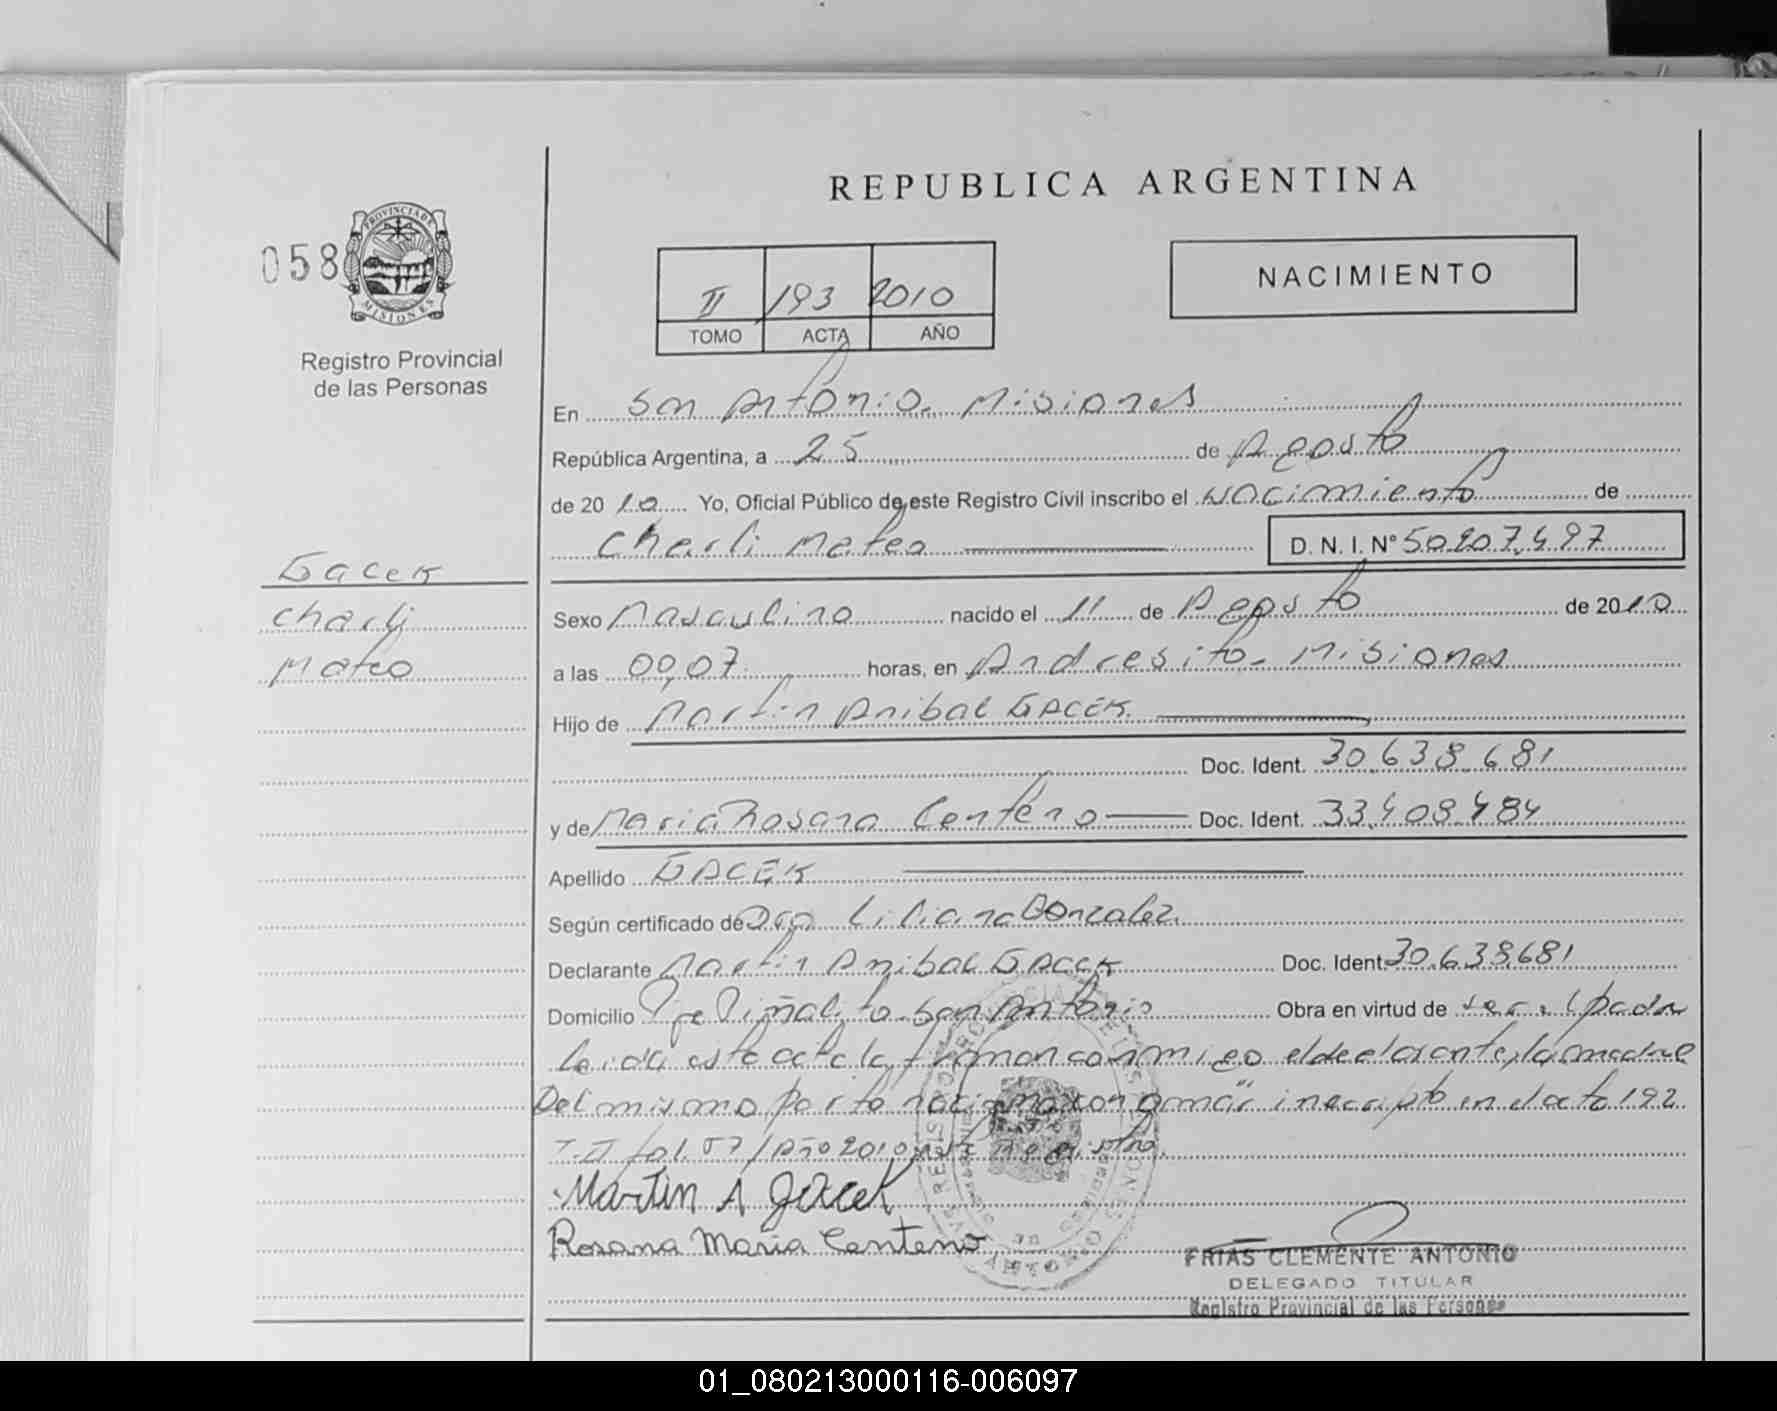 REPUBLICA ARGENTINA
058
PROVINCIA DE
MISIONES
Registro Provincial
de las Personas
II 193 2010
TOMO ACTA AÑO
NACIMIENTO
En San Antonio. Misiones
República Argentina, a 25 de Agosto
de 2010 Yo, Oficial Público de este Registro Civil inscribo el nacimiento de
Charli Mateo D.N.I. Nº 50207.497
Gacek
Charli
Mateo
Sexo Masculino nacido el 11 de Agosto de 2010
a las 00,07 horas, en Andresito. Misiones
Hijo de Martin Anibal GACEK
Doc. Ident. 30.638.681
y de Maria Rosana Centeno Doc. Ident. 33.408.484
Apellido GACEK
Según certificado de Dra Liliana Gonzalez.
Declarante Martin Anibal GACEK Doc. Ident. 30.638.681
Domicilio Piñalito. San Antonio Obra en virtud de ser el padre
leida esta acta la firman conmigo el declarante, la madre
Del mismo parto nacio inscripto en el acta 192
T.II fol. 57/Año 2010
Martin A Gacek
Rosana Maria Centeno
FRIAS CLEMENTE ANTONIO
DELEGADO TITULAR
Registro Provincial de las Personas
01_080213000116-006097